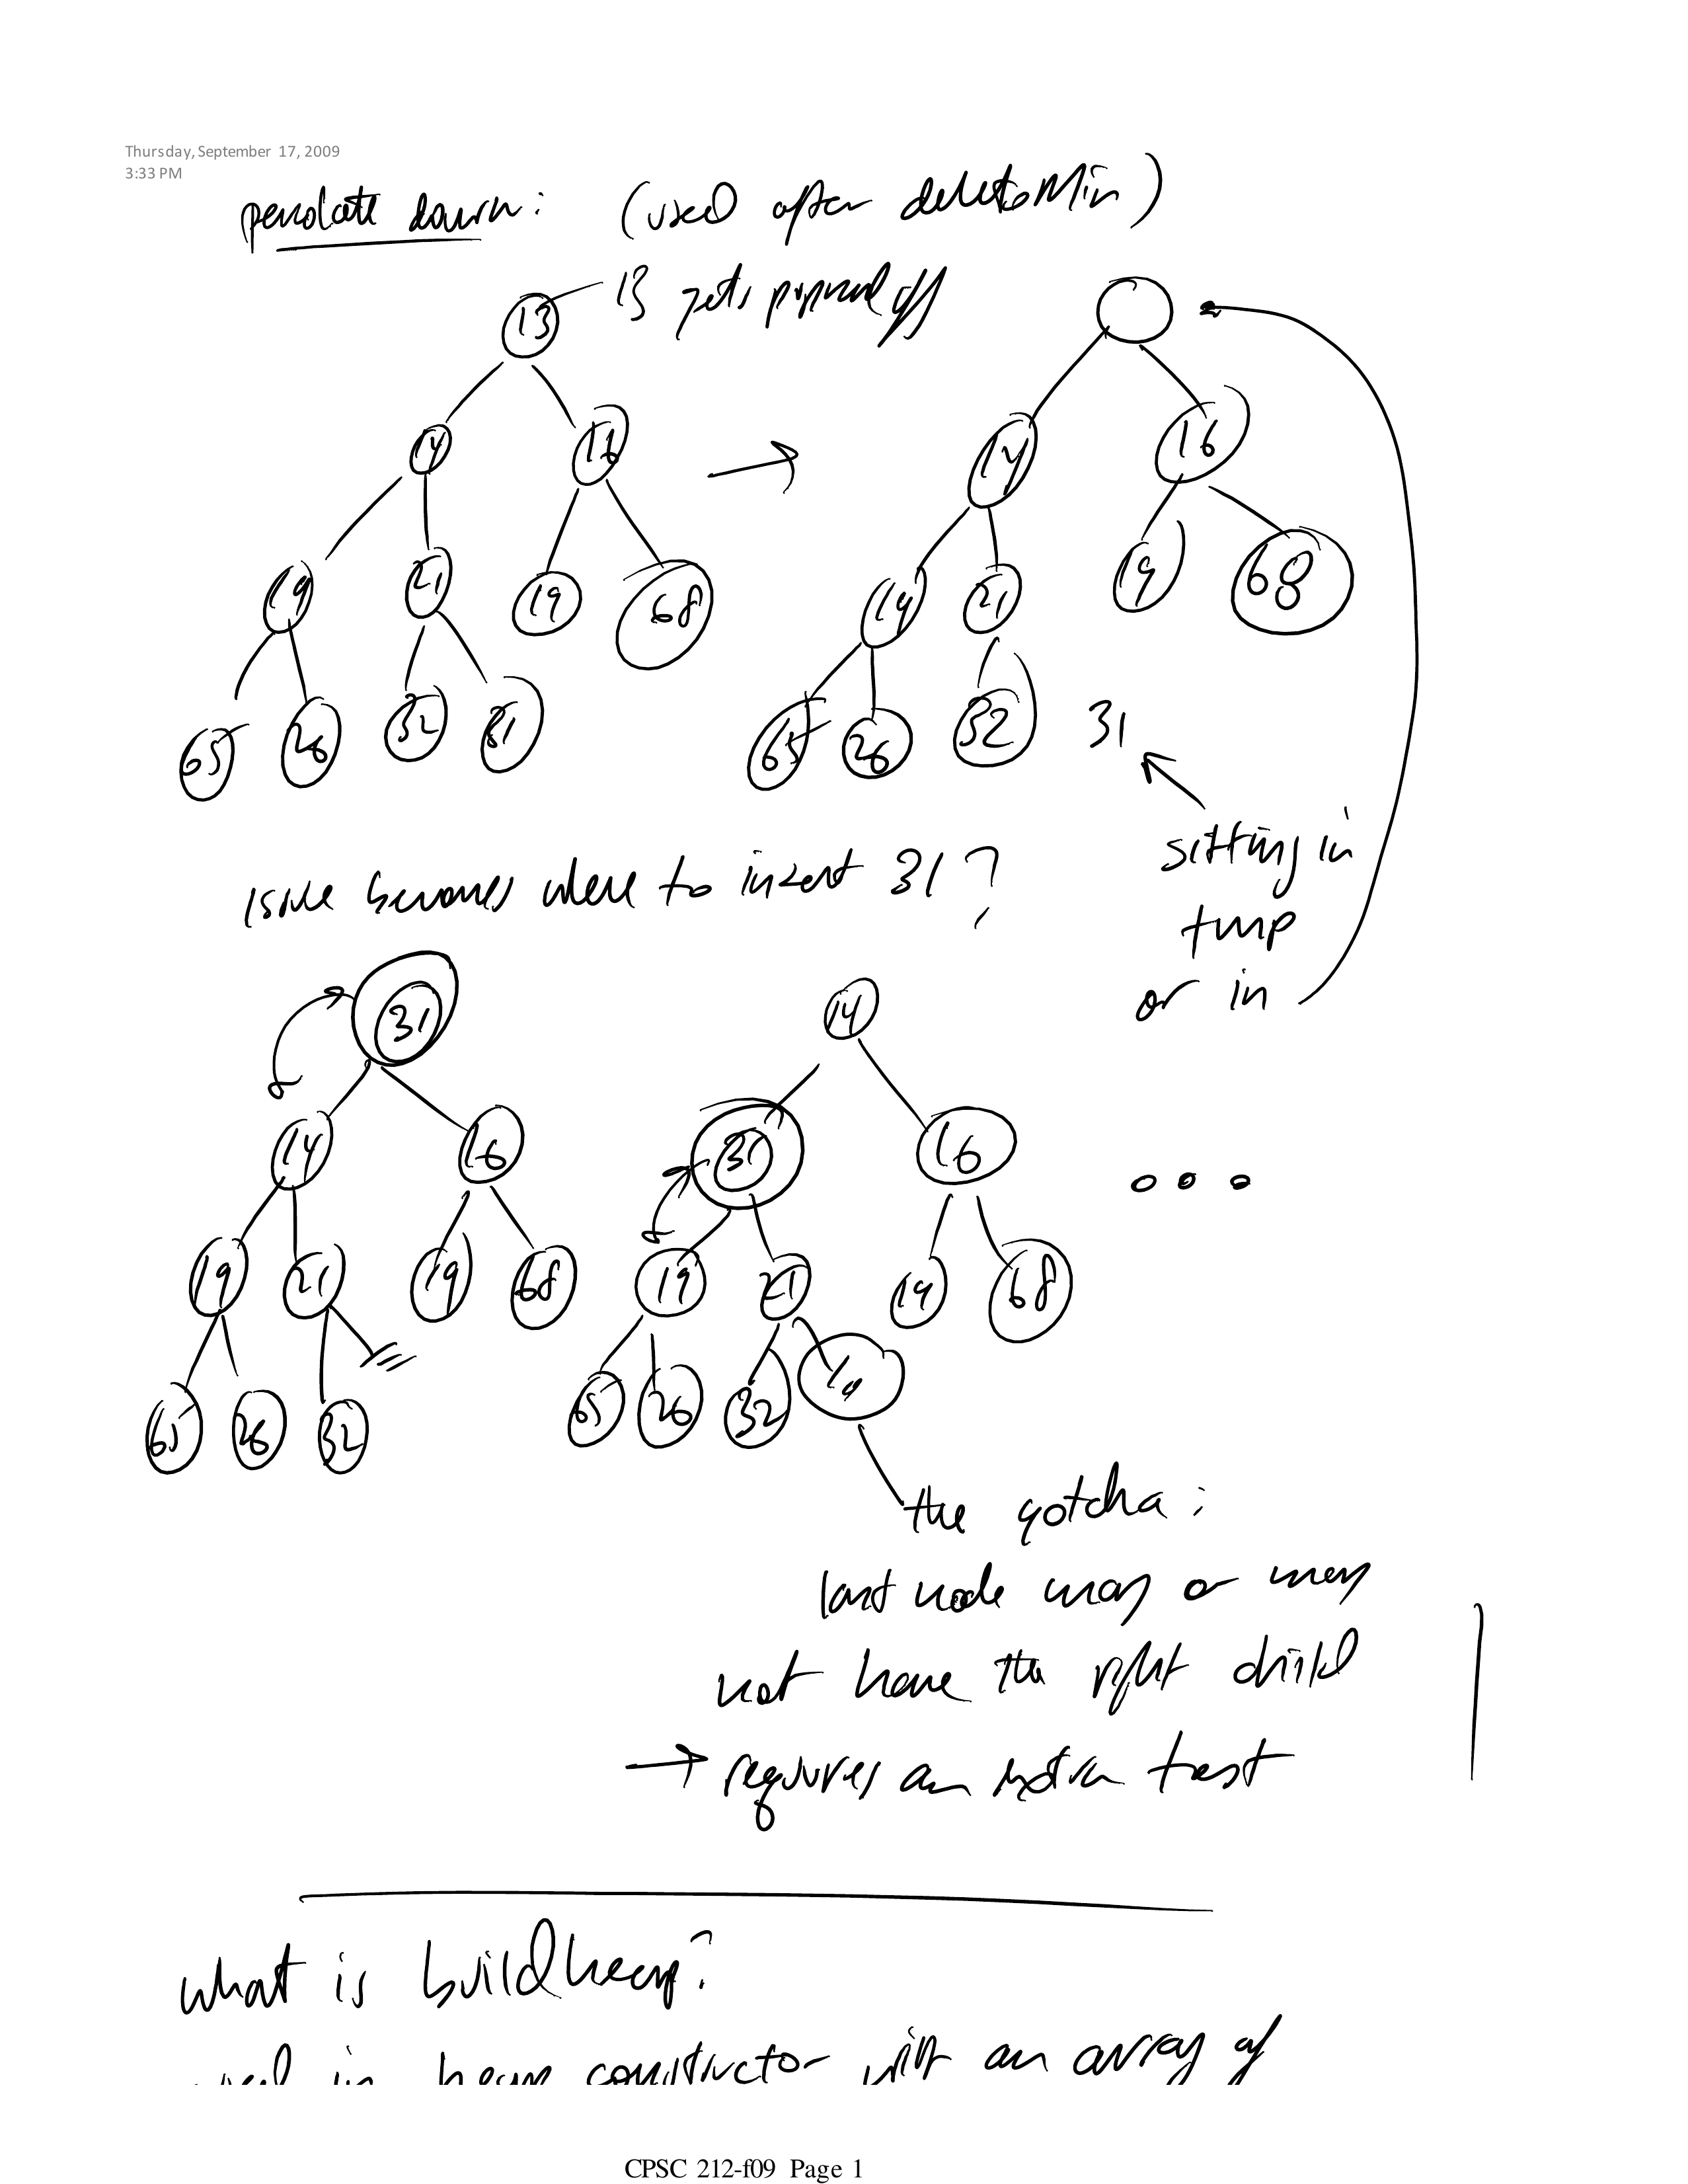 Thursday, September 17, 2009
3:33 PM
percolate down: (used after deleteMin)
13 gets popped off
13
14 16 14 16
19 21 19 68 19 21 19 68
65 26 32 31 65 26 32 31
sitting in
tmp
or in
issue becomes where to insert 31?
31 14
14 16 31 16
19 21 19 68 19 21 19 68
65 26 32 65 26 32
the gotcha:
last node may or may
not have the right child
→ requires an extra test
what is buildheap?
used in heap constructor with an array of
CPSC 212-f09 Page 1